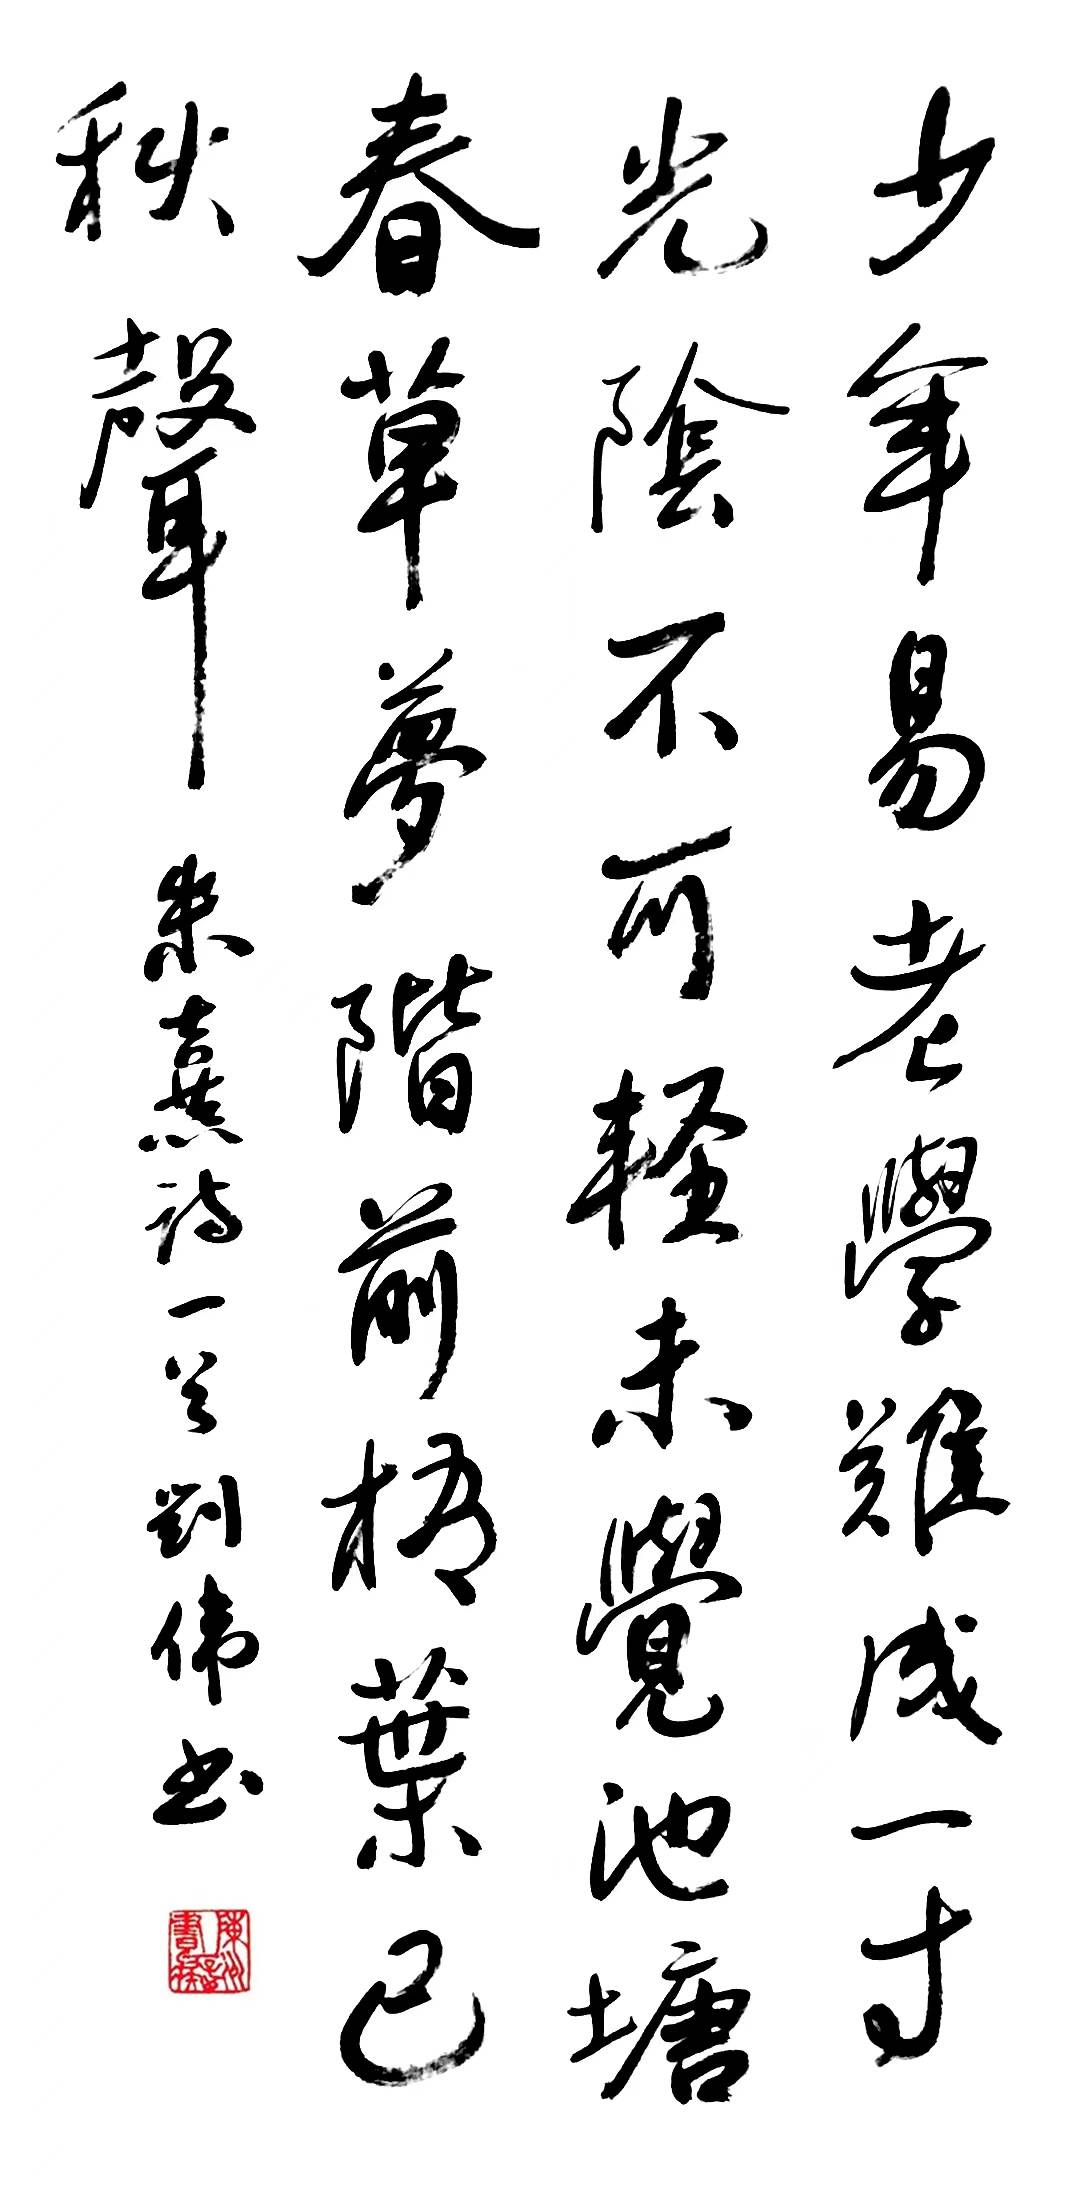 少年易老學難成一寸
光陰不可軽未覺池塘
春草夢階前梧葉已
秋聲 朱熹詩一首 劉偉書